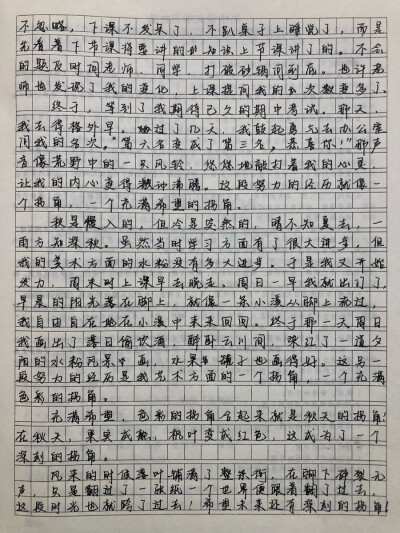 不忽略，下课不发呆了，不趴桌子上睡觉了，而是
先看看下节课将要讲的知识上节课讲了的。不会
的题及时问老师，同学，打破砂锅问到底。也许老
师也发现了我的变化，上课提问我的次数变多了。
终于，等到了我期待已久的期中考试。那天，
我去得格外早。过了几天，我鼓起勇气去办公室
问我的名次。“第六名变成了第三名。恭喜你！”那声
音像荒野中的一只风铃，悠悠地敲打着我的心里，
让我的内心变得沸腾。这段努力的经历就像一
个拐角，一个充满希望的拐角。
秋是慢入的，但冷是突然的，晴不知夏去，一
雨方知深秋。虽然当时学习方面有了很大进步，但
我的美术方面的水粉没有多大进步。于是我又开始
发力，周末时上课早去晚走。周日一早我就出门了，
早晨的阳光落在脚上，就像一条小溪从脚上流过，
我自由自在地在小溪中来来回回。终于那一天周日
我画出了落日偷饮酒，醉卧云川间，染红了一道夕
阳的水粉风景画，水果罐子也画得好。这另一
段努力的经历是我艺术方面的一个拐角，一个充满
色彩的拐角。
充满希望，色彩的拐角合起来就是秋天的拐角！
在秋天，果实成熟，枫叶变成红色，这成为了一个
深刻的拐角。
风来的时候落叶铺满了整条街，在脚下碎裂无
声，只是翻过了一张纸一个世界便跟着翻了过去，
这段时光也就跨了过去！希望未来还有深刻的拐角！